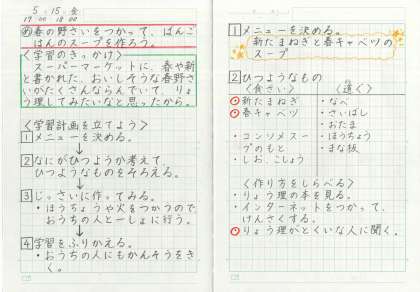 5.15.金
17:00 18:00
め春の野さいをつかって、ばんご
はんのスープを作ろう。
〈学習のきっかけ〉
スーパーマーケットに、春や新
と書かれた、おいしそうな春野さ
いがたくさんならんでいて、りょ
う理してみたいなと思ったから。
〈学習計画を立てよう〉
1メニューを決める。
↓
2なにがひつようか考えて、
ひつようなものをそろえる。
↓
3じっさいに作ってみる。
・ほうちょうや火をつかうので、
おうちの人と一しょに行う。
↓
4学習をふりかえる。
・おうちの人にもかんそうをき
く。
1メニューを決める。
新たまねぎと春キャベツの
スープ
2ひつようなもの
〈食ざい〉 〈道ぐ〉
・新たまねぎ ・なべ
・春キャベツ ・さいばし
・おたま
・コンソメスー ・ほうちょう
プのもと ・まな板
・しお、こしょう
〈作り方をしらべる〉
・りょう理の本を見る。
・インターネットをつかって、
けんさくする。
・りょう理がとくいな人に聞く。